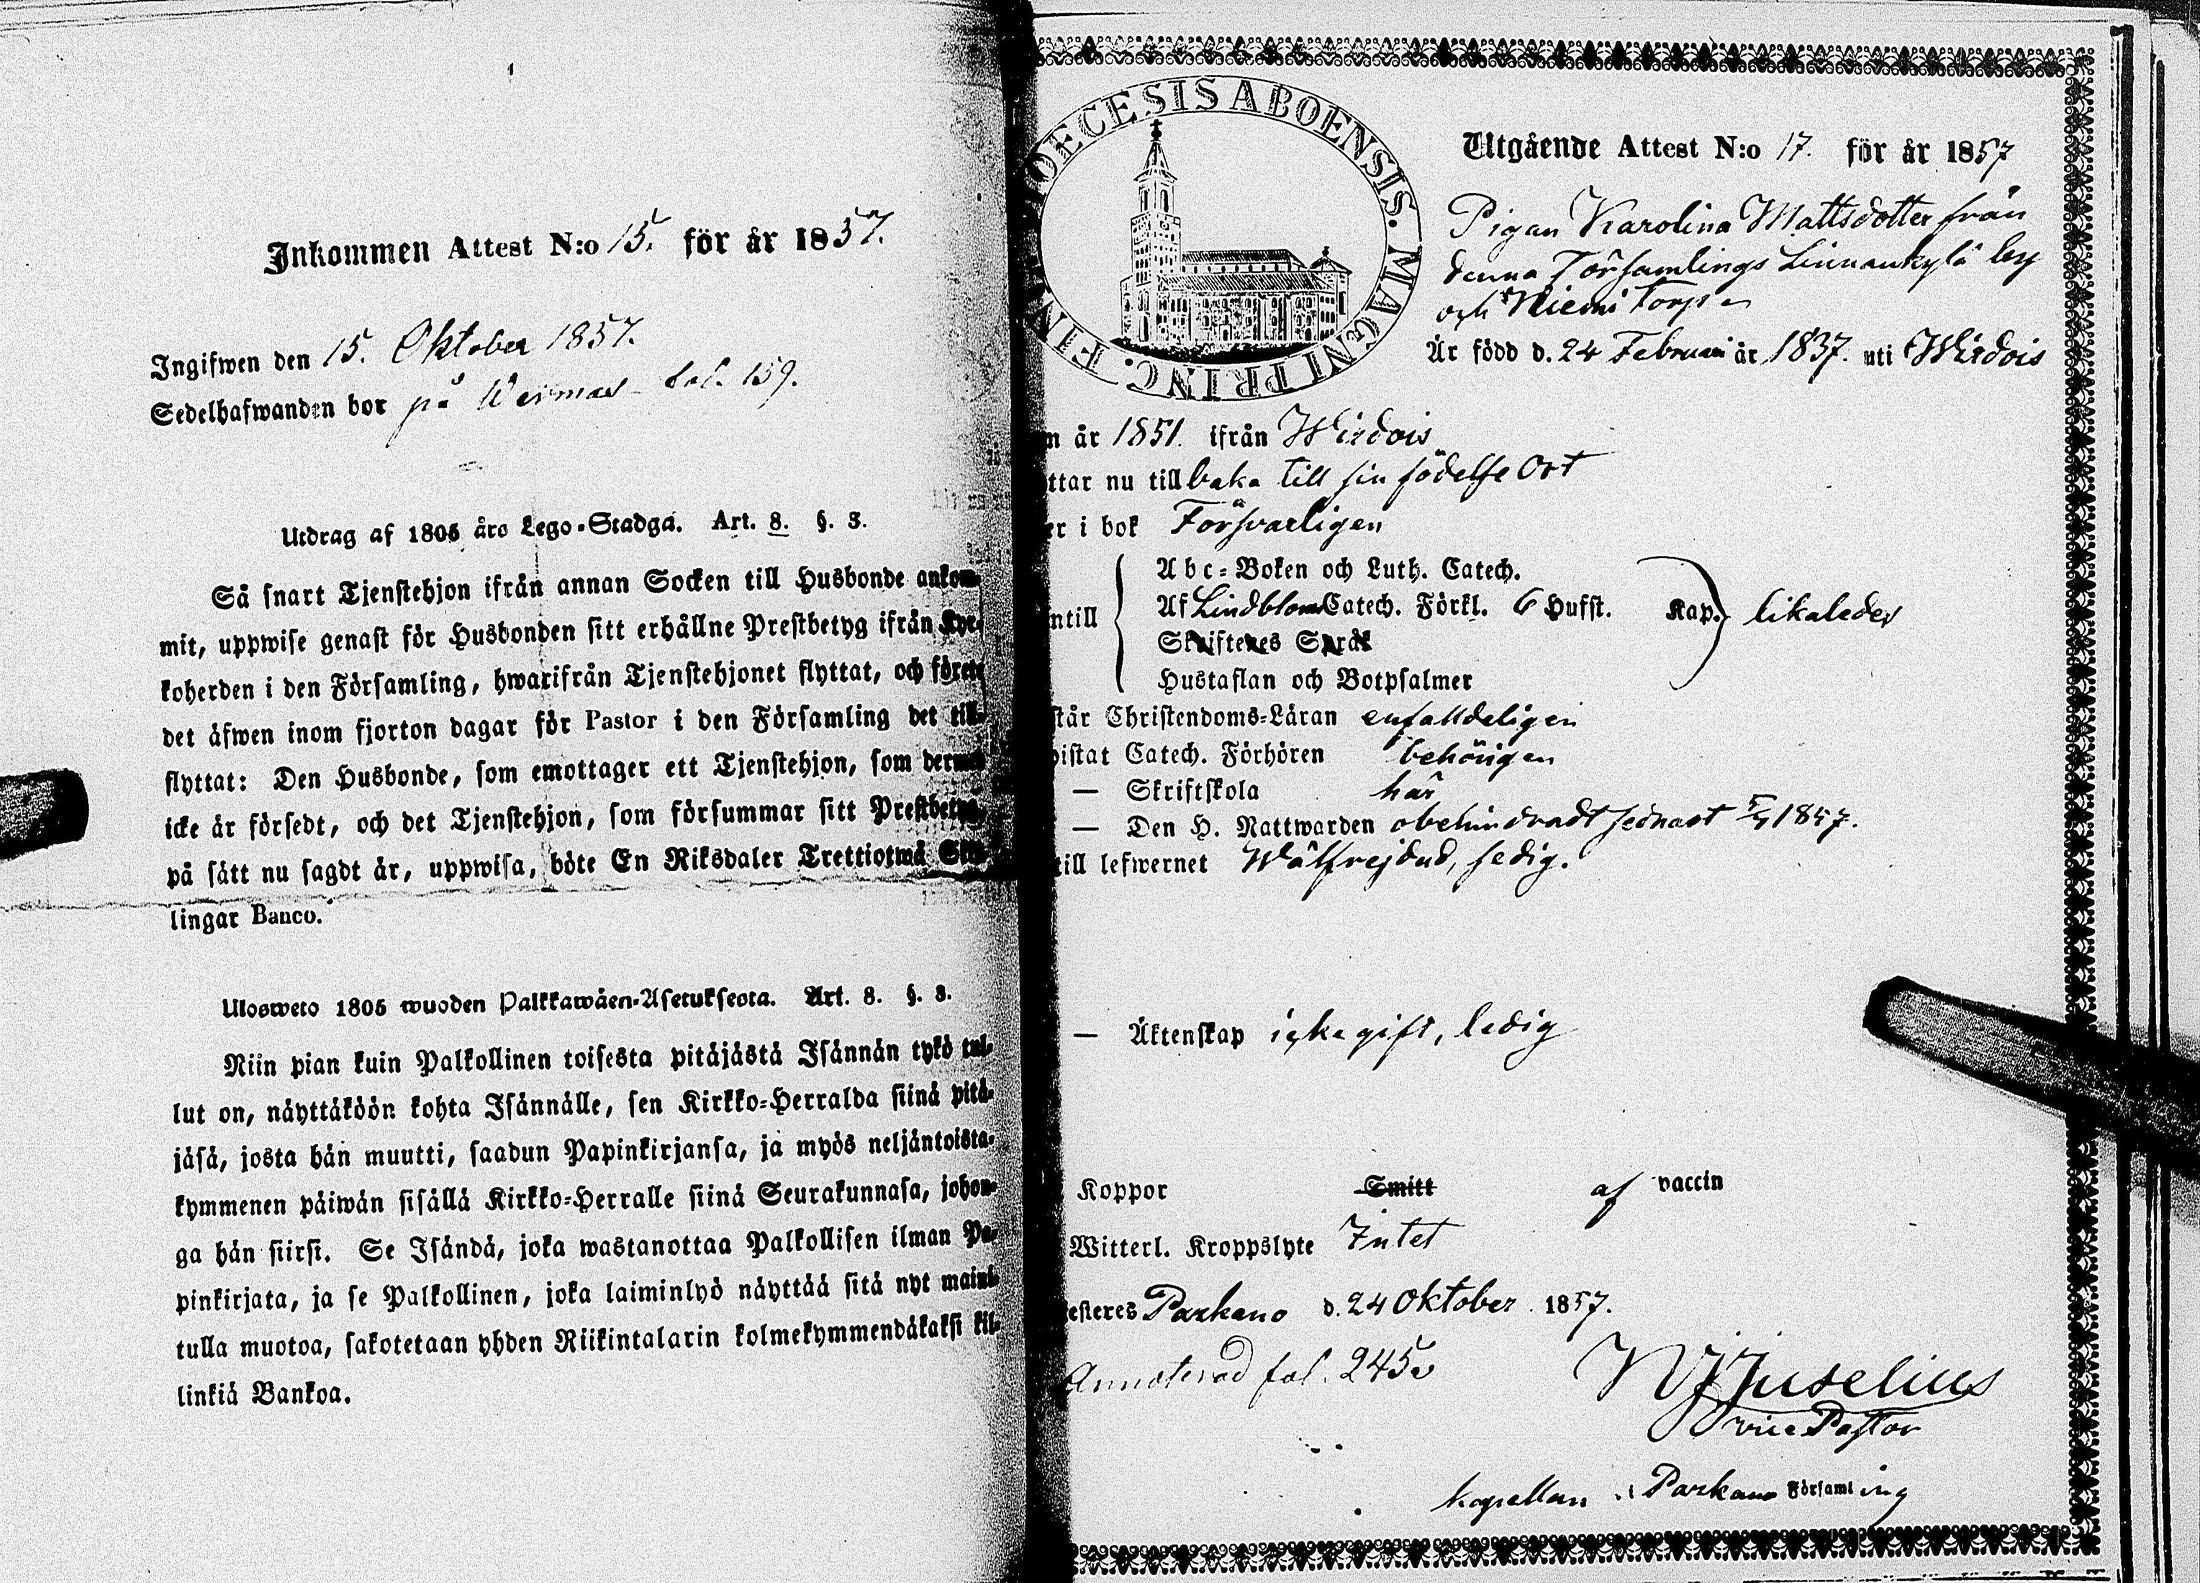 Inkommen Attest N:o 15. för år 1857.
Ingifwen den 15. Oktober 1857.
Sedelhafwanden bor på fol. 159.
Utdrag af 1805 års Lego-Stadga. Art. 8. §. 3.
Så snart Tjenstehjon ifrån annan Socken till Husbonde ankom-
mit, uppwise genast för Husbonden sitt erhållne Prestbetyg ifrån Kyr-
koherden i den Församling, hwarifrån Tjenstehjonet flyttat, och förete
det äfwen inom fjorton dagar för Pastor i den Församling det till-
flyttat: Den Husbonde, som emottager ett Tjenstehjon, som dermed
icke är försedt, och det Tjenstehjon, som försummar sitt Prestbetyg,
på sätt nu sagdt är, uppwisa, böte En Riksdaler Trettiotwå Skil-
lingar Banco.
Ulosweto 1805 wuoden Palkkawäen-Asetuksesta. Art. 8. §. 3.
Niin pian kuin Palkollinen toisesta pitäjästä Isännän tykö tul-
lut on, näyttäköön kohta Isännälle, sen Kirkko-Herralda siinä pitä-
jäsä, josta hän muutti, saadun Papinkirjansa, ja myös neljäntoista-
kymmenen päiwän sisällä Kirkko-Herralle siinä Seurakunnasa, johon-
ga hän siirsi. Se Isändä, joka wastanottaa Palkollisen ilman Pa-
pinkirjata, ja se Palkollinen, joka laiminlyö näyttää sitä nyt maini-
tulla muotoa, sakotetaan yhden Riikintalarin kolmekymmendäkaksi kil-
linkiä Bankoa.
DIOECESIS ABOENSIS. MAGNI PRINC. FIN
Utgående Attest N:o 17. för år 1857
Pigan Karolina Mattsdotter från
denna Församlings Linnankylä by
och Niemi Torp
Är född d. 24 Februari år 1837. uti Wirdois
m år 1851. ifrån Wirdois
ttar nu tillbaka till sin födelse Ort
er i bok Försvarligen
Abc-Boken och Luth. Catech.
ntill Af Lindbloms Catech. Förkl. 6 Hufst. Kap. likaledes
Skriftenes Språk
Hustaflan och Botpsalmer
står Christendoms-Läran enfalldeligen
bistat Catech. Förhören behörigen
— Skriftskola här
— Den H. Nattwarden obehindradt sednast 5/7 1857.
till lefwernet Wälfrejdad, ledig.
— Äktenskap icke gift, ledig
Koppor Smitt af vaccin
Witterl. Kroppslyte Intet
esteres Parkano d. 24 Oktober 1857.
Annoterad fol. 245.
Juselius
vice Pastor
kapellan i Parkano Församling